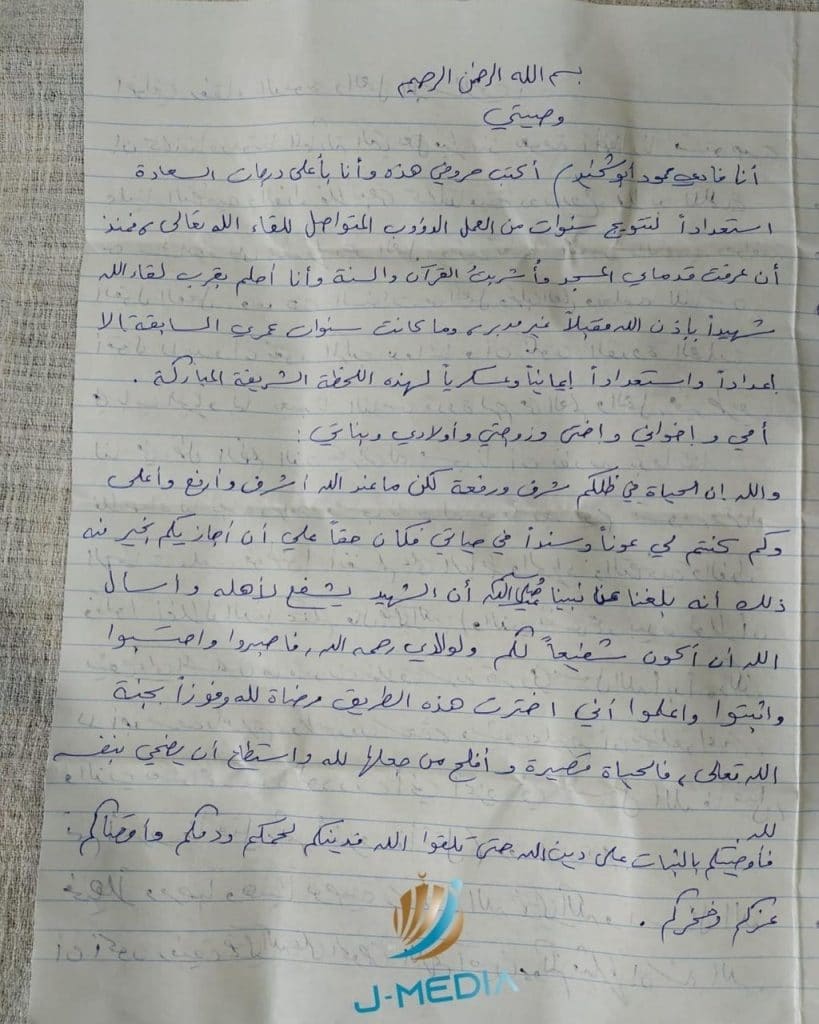 بسم الله الرحمن الرحيم
وصيتي
أنا فادي محمود أبو شخيدم أكتب حروفي هذه وأنا بأعلى درجات السعادة
استعداداً لتتويج سنوات من العمل الدؤوب المتواصل للقاء الله تعالى، فمنذ
أن عرفت قدماي المسجد وأشربت القرآن والسنة وأنا أحلم بقرب لقاء الله
شهيداً بإذن الله مقبلاً غير مدبر، وما كانت سنوات عمري السابقة إلا
إعداداً واستعداداً إيمانياً وعسكرياً لهذه اللحظة الشريفة المباركة.
أمي وإخواني واختي وزوجتي وأولادي وبناتي:
والله إن الحياة في ظلكم شرف ورفعة لكن ما عند الله أشرف وأرفع وأعلى
وكم كنتم لي عوناً وسنداً في حياتي فكان حقاً علي أن أجازيكم بخير منه
ذلك أنه بلغنا عن نبينا صلى الله أن الشهيد يشفع لأهله واسال
الله أن أكون شفيعاً لكم ولولدي رحمه الله، فاصبروا واحتسبوا
واثبتوا واعلموا أني اخترت هذه الطريق مرضاة لله وفوزاً بجنة
الله تعالى، فالحياة قصيرة وأفلح من جعلها لله واستطاع أن يضحي بنفسه
لله.
فأوصيكم بالثبات على دين الله حتى تلقوا الله فدينكم لحمكم ودمكم وأقصاكم
عزكم وفخركم.
J-MEDIA